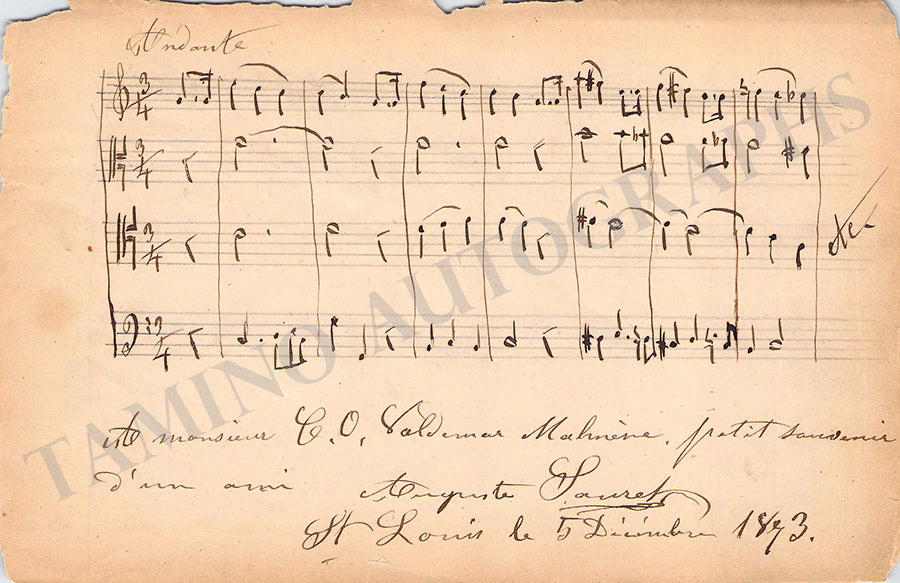 Andante
etc
A monsieur C. O. Valdemar Malmène, petit souvenir
d'un ami Auguste Sauret
St Louis le 5 Décembre 1873.
TAMINO AUTOGRAPHS